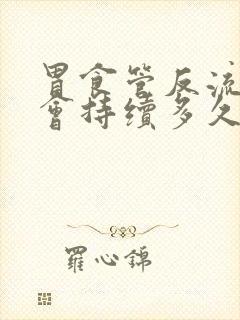 胃食管反流
會持續多久
羅心錦